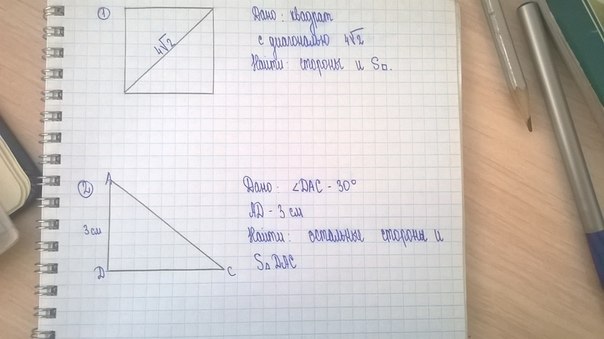 ① Дано: квадрат
4√2 с диагональю 4√2
Найти: стороны и S□.
② A Дано: ∠DAC - 30°
AD - 3 см
3 см Найти: остальные стороны и
D C S△ DAC